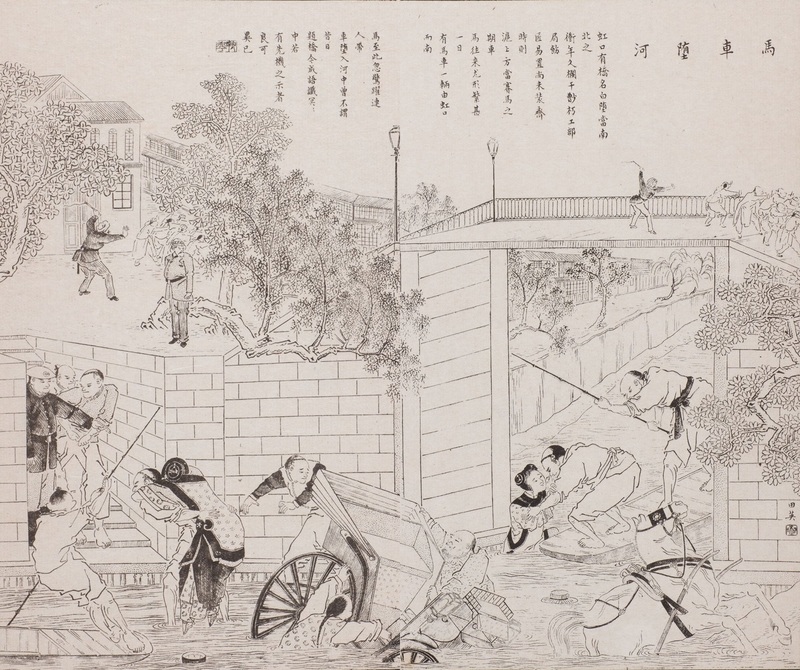 馬車墮河
虹口有橋名白墮當南
北之
衝年久欄干朽工部
局飭
匠易置尚未裝齊
時則
滬上方當賽馬之
期車
馬往來尤形繁甚
一日
有馬車一輛由虹口
而南
馬至此忽驚躍連
人帶
車墮入河中曾不謂
昔日
題橋今成語讖冥冥
中若
有先機之示者
良可
異已
田英